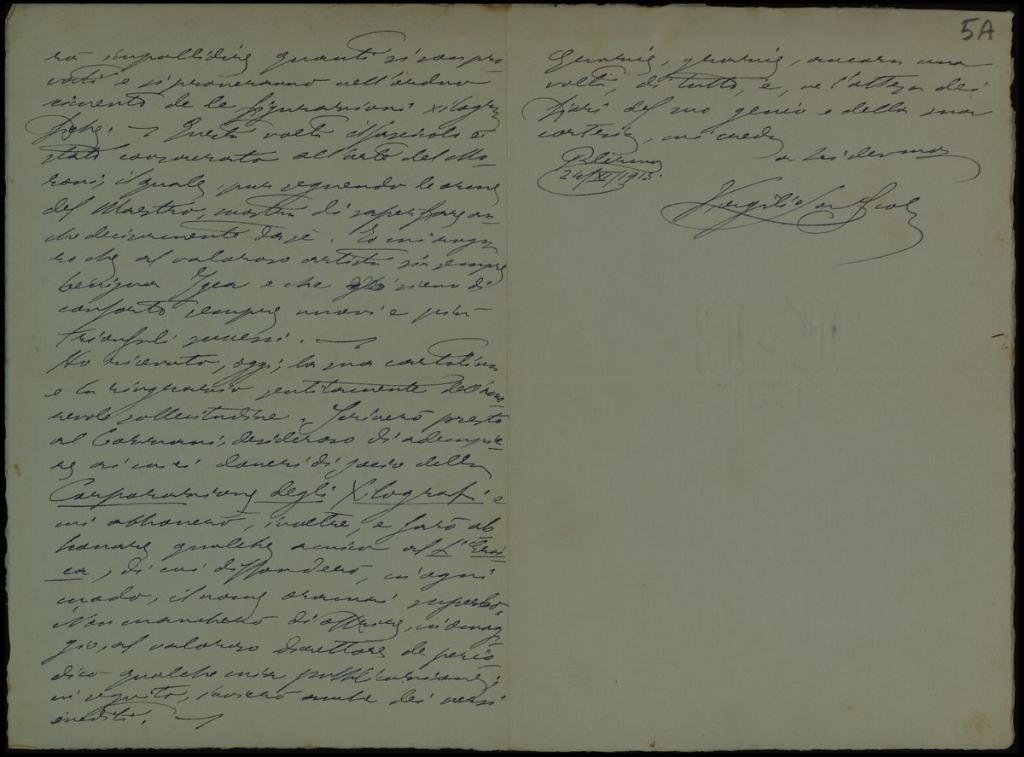 rà impallidire quanti si son pro
vati e si proveranno nell'arduo
cimento de le figurazioni xilogra
fiche. — Questa volta il fascicolo è
stato consacrato all'arte del Mo
roni, il quale, pur seguendo le orme
del Maestro, mostra di saper far an
che decisamente da sè. Io mi augu
ro che al valoroso artista sia sempre
benigna Igea e che gli sieno di
conforto sempre nuovi e più
trionfali successi. —
Ho ricevuto, oggi, la sua cartolina
e la ringrazio sentitamente dell'amo
revole sollecitudine. Scriverò presto
al desideroso di adempie
re ai miei doveri di socio della
Corporazione degli Xilografi e
mi abbonerò, inoltre, e farò ab
bonare qualche amico al L'Eroi
ca, di cui diffonderò, in ogni
modo, il nome oramai superbo.
Non mancherò di offrire, in omag
gio, al valoroso direttore del perio
dico qualche mia pubblicazione;
in seguito, invierò anche dei versi
inediti. —
5A
Grazie, grazie, ancora una
volta, di tutto, e, ne l'attesa dei
doni del suo genio e della sua
cortesia, mi creda
24/XII/1913.